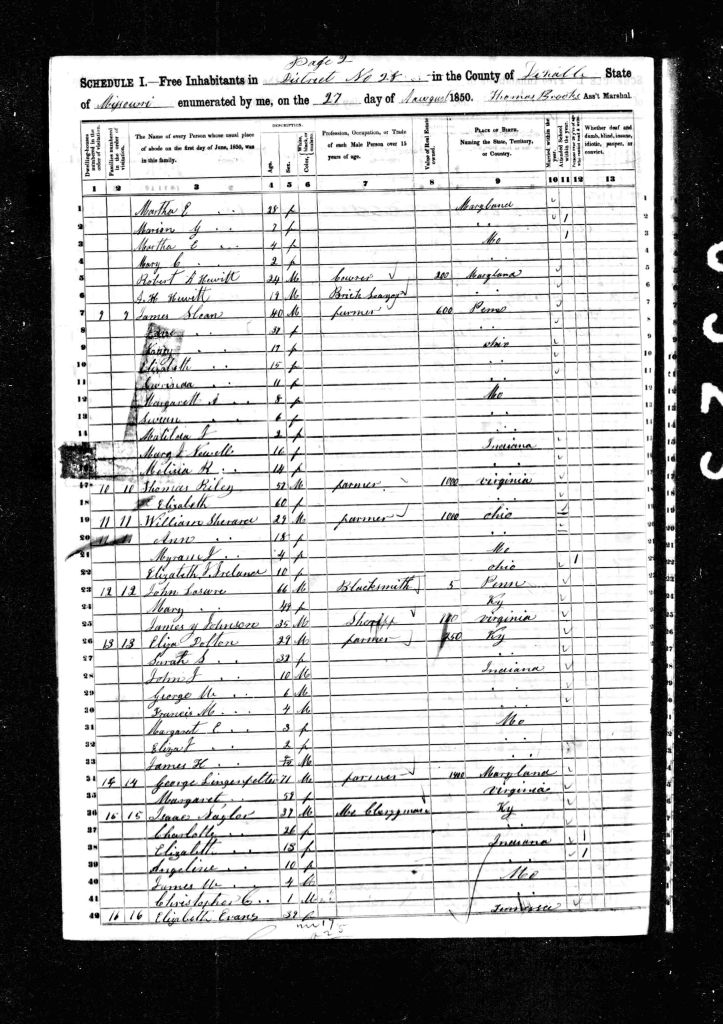 Page 2
SCHEDULE I.—Free Inhabitants in District No 28 in the County of Dekalb State
of Missouri enumerated by me, on the 27 day of August 1850. Thomas Brooks Ass't Marshal.
DESCRIPTION.
Dwelling-houses numbered in the order of visitation. Families numbered in the order of visitation. The Name of every Person whose usual place of abode on the first day of June, 1850, was in this family. Age. Sex. Color, Profession, Occupation, or Trade of each Male Person over 15 years of age. Value of Real Estate owned. PLACE OF BIRTH. Naming the State, Territory, or Country. Married within the year. Attended School within the year. Whether deaf and dumb, blind, insane, idiotic, pauper, or convict.
1 2 3 4 5 6 7 8 9 10 11 12 13
1 Martha E 28 f Maryland 1
2 Marian Y 7 f " 1 2
3 Martha E 4 f Mo 1 3
4 Mary C 2 f " 4
5 Robert A Hewitt 24 M 200 Maryland 5
6 J. H Hewitt 19 M Brick 6
7 9 9 James Sloan 40 M farmer 600 Penn 7
8 38 f 8
9 17 f ohio 9
10 Elizabeth 15 f 10
11 Lurinda 11 f 11
12 Margarett A 8 f Mo 12
13 6 f 13
14 Matilda J 2 f 14
15 Mary J Newell 16 f Indiana 15
Melisia R 14 f
17 10 10 Thomas Riley 52 M farmer 1000 virginia 17
18 Elizabeth 60 f 18
19 11 11 William Sherard 29 M farmer 1000 ohio
20 Ann 18 f
21 Myran J 4 f Mo
22 Elizabeth J Ireland 10 f ohio 1 22
23 12 12 John 66 M Blacksmith 5 Penn 23
24 Mary 49 f Ky 24
25 James Y Johnson 35 M Sheriff virginia 25
26 13 13 Eliza Dolton 29 M farmer 250 Ky 26
27 Sarah S 32 f 27
28 John J 10 M Indiana 28
29 George W 6 M 29
30 Francis M 4 M 30
31 Margaret E 3 f Mo 31
32 Eliza J 2 f 32
33 James H M
34 14 14 George Lingenfelter 71 M farmer 1400 Maryland
35 Margaret 59 f virginia 35
36 15 15 Isaac Naylor 37 M Me Clergyman Ky 36
37 Charlotty 26 f 37
38 Elizabeth 15 f Indiana 1 38
39 Angeline 10 f 1 39
40 James W 4 Mo 40
41 Christopher C 1 M 41
42 16 16 Elizabeth Evans 39 f Tennessee 42